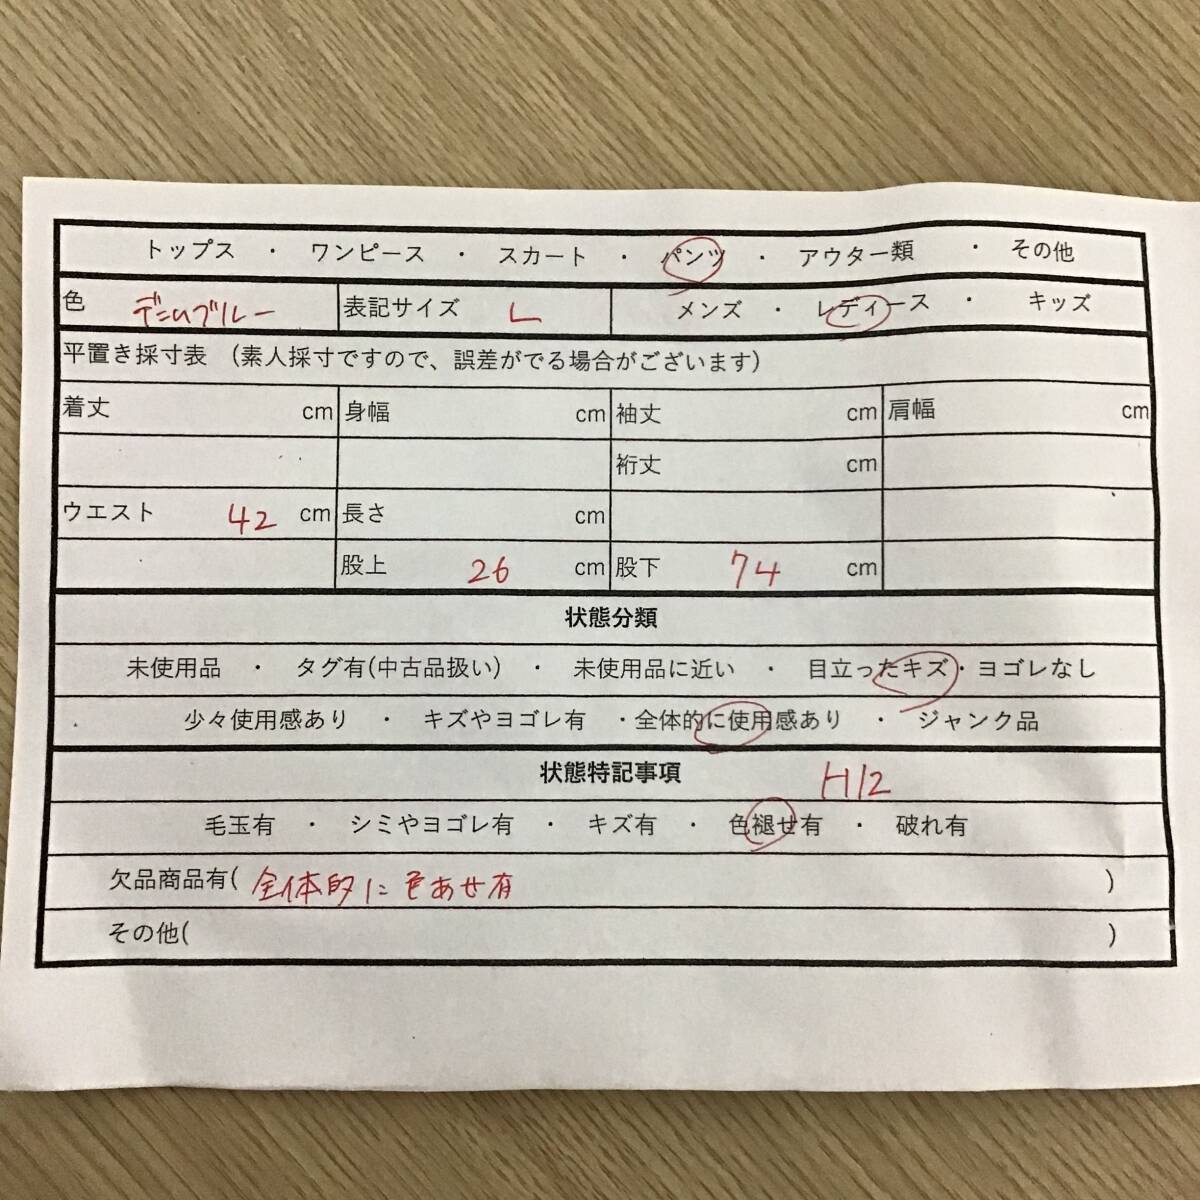 トップス ・ ワンピース ・ スカート ・ パンツ ・ アウター類 ・ その他
色 デニムブルー 表記サイズ L メンズ ・ レディース ・ キッズ
平置き採寸表 （素人採寸ですので、誤差がでる場合がございます）
着丈 cm 身幅 cm 袖丈 cm 肩幅 cm
裄丈 cm
ウエスト 42 cm 長さ cm
股上 26 cm 股下 74 cm
状態分類
未使用品 ・ タグ有(中古品扱い) ・ 未使用品に近い ・ 目立ったキズ・ヨゴレなし
少々使用感あり ・ キズやヨゴレ有 ・全体的に使用感あり ・ ジャンク品
状態特記事項 H12
毛玉有 ・ シミやヨゴレ有 ・ キズ有 ・ 色褪せ有 ・ 破れ有
欠品商品有( 全体的に色あせ有 )
その他( )